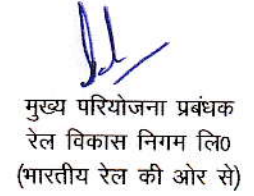 मुख्य परियोजना प्रबंधक
रेल विकास निगम लि०
(भारतीय रेल की ओर से)